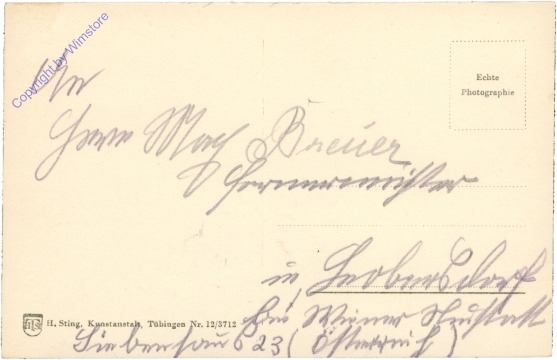 Copyright by Wimstore
Echte
Photographie
An
Herrn Max Breuer
in Leobersdorf
bei Wiener Neustadt
H. Sting, Kunstanstalt, Tübingen Nr. 12/3712
Siebenhaus 23 (Österreich)